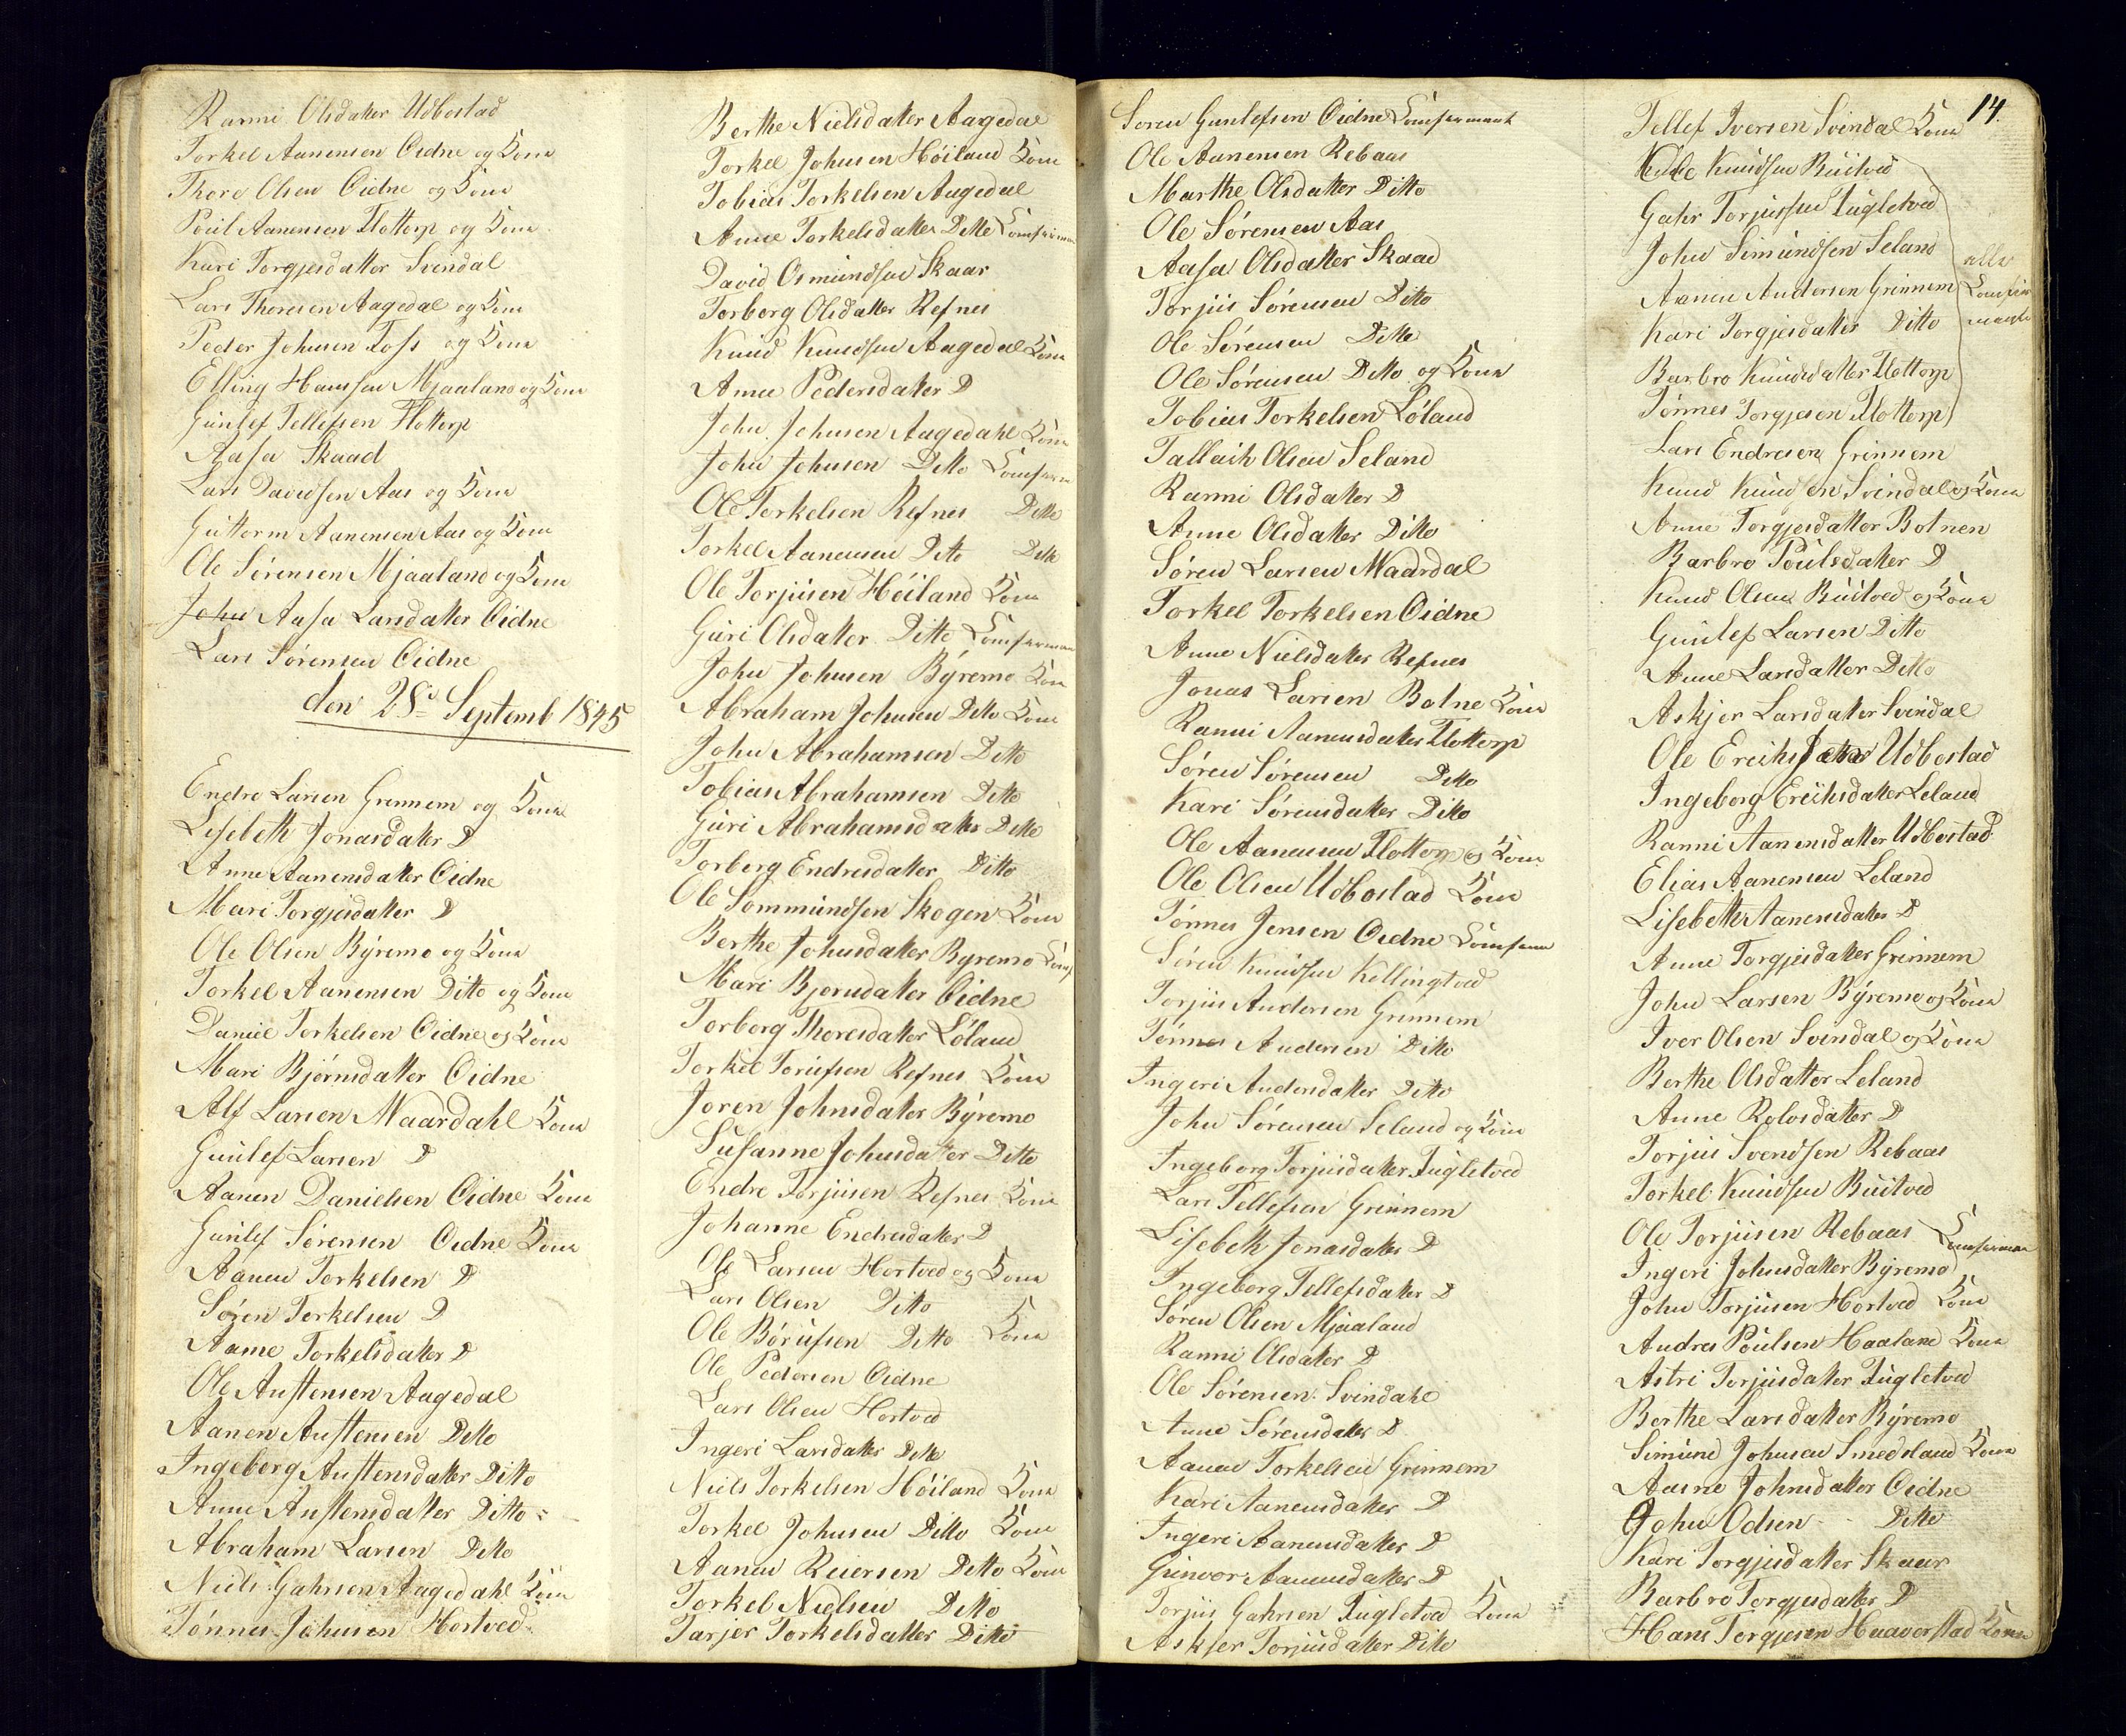 Ranni Olsdatter Udbostad
Torkel Aanensen Oidne og Kone
Thore Olsen Oidne og Kone
Poul Aanensen Flottorp og Kone
Kari Torgjesdatter Svindal
Lars Thoresen Aagedal og Kone
Peder Johnsen Foss og Kone
Elling Hansen Mjaaland og Kone
Gunlef Tellefsen Flottorp
Aasa Skaad
Lars Davidsen Aas og Kone
Guttorm Aanensen Aas og Kone
Ole Sørensen Mjaaland og Kone
John Aasa Larsdatter Oidne
Lars Sørensen Oidne
den 28de Septemb 1845
Endre Larsen Grinnem og Kone
Lisebeth Jonasdatter D
Anne Aanensdatter Oidne
Mari Torgjesdatter D
Ole Olsen Byremo og Kone
Torkel Aanensen Ditto og Kone
Daniel Torkelsen Oidne og Kone
Mari Bjørnsdatter Oidne
Alf Larsen Maardahl Kone
Gunlef Larsen D
Aanen Danielsen Oidne Kone
Gunlef Sørensen Oidne Kone
Aanen Torkelsen D
Søren Torkelsen D
Aame Torkelsdatter D
Ole Austensen Aagedal
Aanen Austensen Ditto
Ingeborg Austensdatter Ditto
Anne Austensdatter Ditto
Abraham Larsen Ditto
Niels Gahrsen Aagedahl Kone
Tønnes Johnsen Hortved
Berthe Nielsdatter Aagedal
Torkel Johnsen Höiland Kone
Tobias Torkelsen Aagedal
Anne Torkelsdatter Ditto Comfirman
David Osmundsen Skaar
Torborg Olsdatter Refnes
Knud Knudsen Aagedal Kone
Anne Pedersdatter D
John Johnsen Aagedahl Kone
John Johnsen Ditto Comferm
Ole Torkelsen Refnes Ditto
Torkel Aanensen Ditto Ditto
Ole Torjusen Höiland Kone
Guri Olsdatter Ditto Comferman
John Johnsen Byremo Kone
Abraham Johnsen Ditto Kone
John Abrahamsen Ditto
Tobias Abrahamsen Ditto
Guri Abrahamsdatter Ditto
Torborg Endresdatter Ditto
Ole Sommundsen Skogen Kone
Berthe Johnsdatter Byremo Comf
Mari Bjornsdatter Oidne
Torborg Thoresdatter Löland
Torkel Torüfsen Refnes Kone
Joren Johnsdatter Byremo
Susanne Johnsdatter Ditto
Endre Torjusen Refnes Kone
Johanne Endresdatter D
Ole Larsen Hortved og Kone
Lars Olsen Ditto
Ole Börüfsen Ditto Kone
Ole Pedersen Oidne
Lars Olsen Hortved
Ingeri Larsdatter Ditto
Niels Torkelsen Höiland Kone
Torkel Johnsen Ditto Kone
Aanen Reiersen Ditto Kone
Torkel Nielsen Ditto
Tarjer Torkelsdatter Ditto
Soren Gunlefsen Oidne Comfermant
Ole Aanensen Rebaas
Marthe Olsdatter Ditto
Ole Sørensen Aas
Aasa Olsdatter Skaad
Torjus Sørensen Ditto
Ole Sørensen Ditto
Ole Sørensen Ditto og Kone
Tobias Torkelsen Löland
Tallaik Olsen Seland
Ranni Olsdatter D
Anne Olsdatter Ditto
Søren Larsen Maardal
Torkel Torkelsen Oidne
Anne Nielsdatter Refnes
Jonas Larsen Botne Kone
Ranni Aanensdatter Flottorp
Søren Sørensen Ditto
Kari Sørensdatter Ditto
Ole Aanensen Flottorp og Kone
Ole Olsen Udbostad Kone
Tønnes Jensen Oidne Comferm
Søren Knudsen Kollingtved
Torjus Andersen Grinnem
Tønnes Andersen Ditto
Ingeri Andersdatter Ditto
John Sörensen Seland og Kone
Ingeborg Torjusdatter Fugletved
Lars Tellefsen Grinnem
Lisebeth Jonasdatter D
Ingeborg Tellefsdatter D
Søren Olsen Mjaaland
Ranni Olsdatter D
Ole Sørensen Svindahl
Anne Sørensdatter D
Aanen Torkelsen Grinnem
Kari Aanensdatter D
Ingeri Aanensdatter D
Gunvor Aanensdatter D
Torjus Gahrsen Fugletved Kone
Askjer Torjusdatter Ditto
14
Tellef Iversen Svindal Kone
Ole Knudsen Buitved
Gahr Torjussen Fugletved
John Simundsen Seland
Aanen Andersen Grinnem
Kari Torgjesdatter Ditto
alle Comfirmante
Barbro Knudsdatter Flottorp
Tönnes Torgjesen Flottorp
Lars Endresen Grinnem
Knud Knudsen Svindal og Kone
Anne Torgjesdatter Botnen
Barbro Poulsdatter D
Knud Olsen Buitved og Kone
Gunlef Larsen Ditto
Anne Larsdatter Ditto
Askjer Larsdatter Svindal
Ole Ereiks Udbostad
Ingeborg Ereiksdatter Leland
Ranni Aanensdatter Udbostad
Elias Aanensen Leland
Lisebeth Aanensdatter D
Anne Torgjesdatter Grinnem
John Larsen Byremo og Kone
Iver Olsen Svindal og Kone
Berthe Olsdatter Leland
Anne Rolosdatter D
Torjus Svendsen Rebaas
Torkel Knudsen Buitved
Ole Torjusen Rebaas Comferman
Ingeri Johnsdatter Byremo
John Torjusen Hortved Kone
Andres Poulsen Haaland Kone
Astri Torjusdatter Fugletved
Berthe Larsdatter Byremo
Simund Johnsen Smedsland Kone
Aasne Johnsdatter Oidne
John Odsen Ditto
Kari Torgjesdatter Skaar
Barbro Torgjesdatter D
Hans Torgjesen Haaverstad Kone